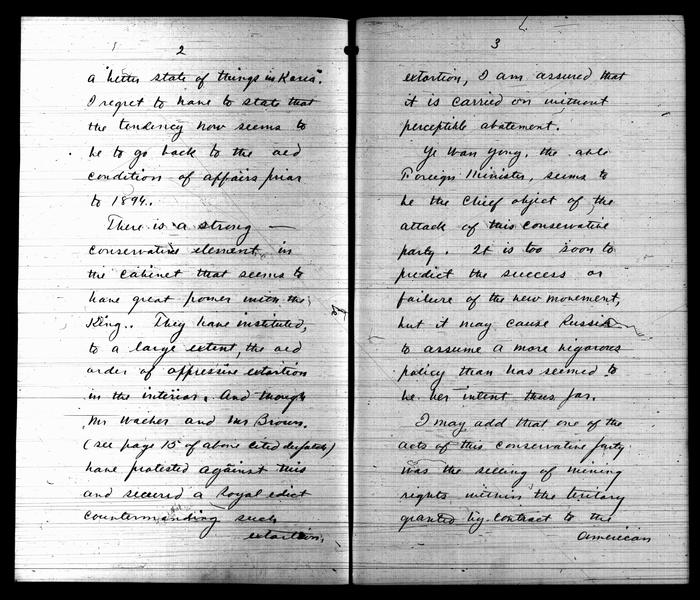 2
a "better state of things in Korea".
I regret to have to state that
the tendency now seems to
be to go back to the old
condition of affairs prior
to 1894.
There is a strong —
conservative element in
the cabinet that seems to
have great power with the
King. They have instituted,
to a large extent, the old
order of oppressive extortion
in the interior. And though
Mr Waeber and Mr Brown.
(see page 15 of above cited despatch)
have protested against this
and secured a Royal edict
countermanding such
extortion,
3
extortion, I am assured that
it is carried on without
perceptible abatement.
Ye Wan Yong, the able
Foreign Minister, seems to
be the chief object of the
attack of this conservative
party. It is too soon to
predict the success or
failure of the new movement,
but it may cause Russia
to assume a more vigorous
policy than has seemed to
be her intent thus far.
I may add that one of the
acts of this conservative party
was the selling of mining
rights within the teritary
granted by contract to the
American